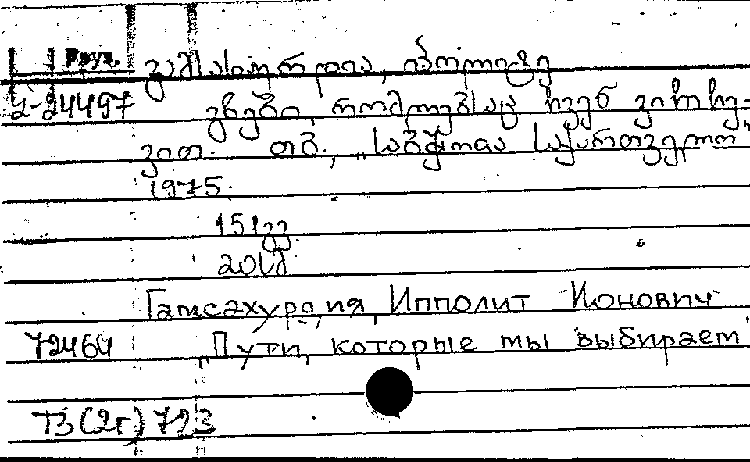 Груз. გამსახურდია, იპოლიტე
2-24497 გზები, რომლებსაც ჩვენ ვირჩე-
ვით. თბ., „საბჭოთა საქართველო"
1975.
151გვ
20სმ
Гамсахурдия, Ипполит Ионович
72464 „Пути, которые мы выбираем"
Т3(2г) 723